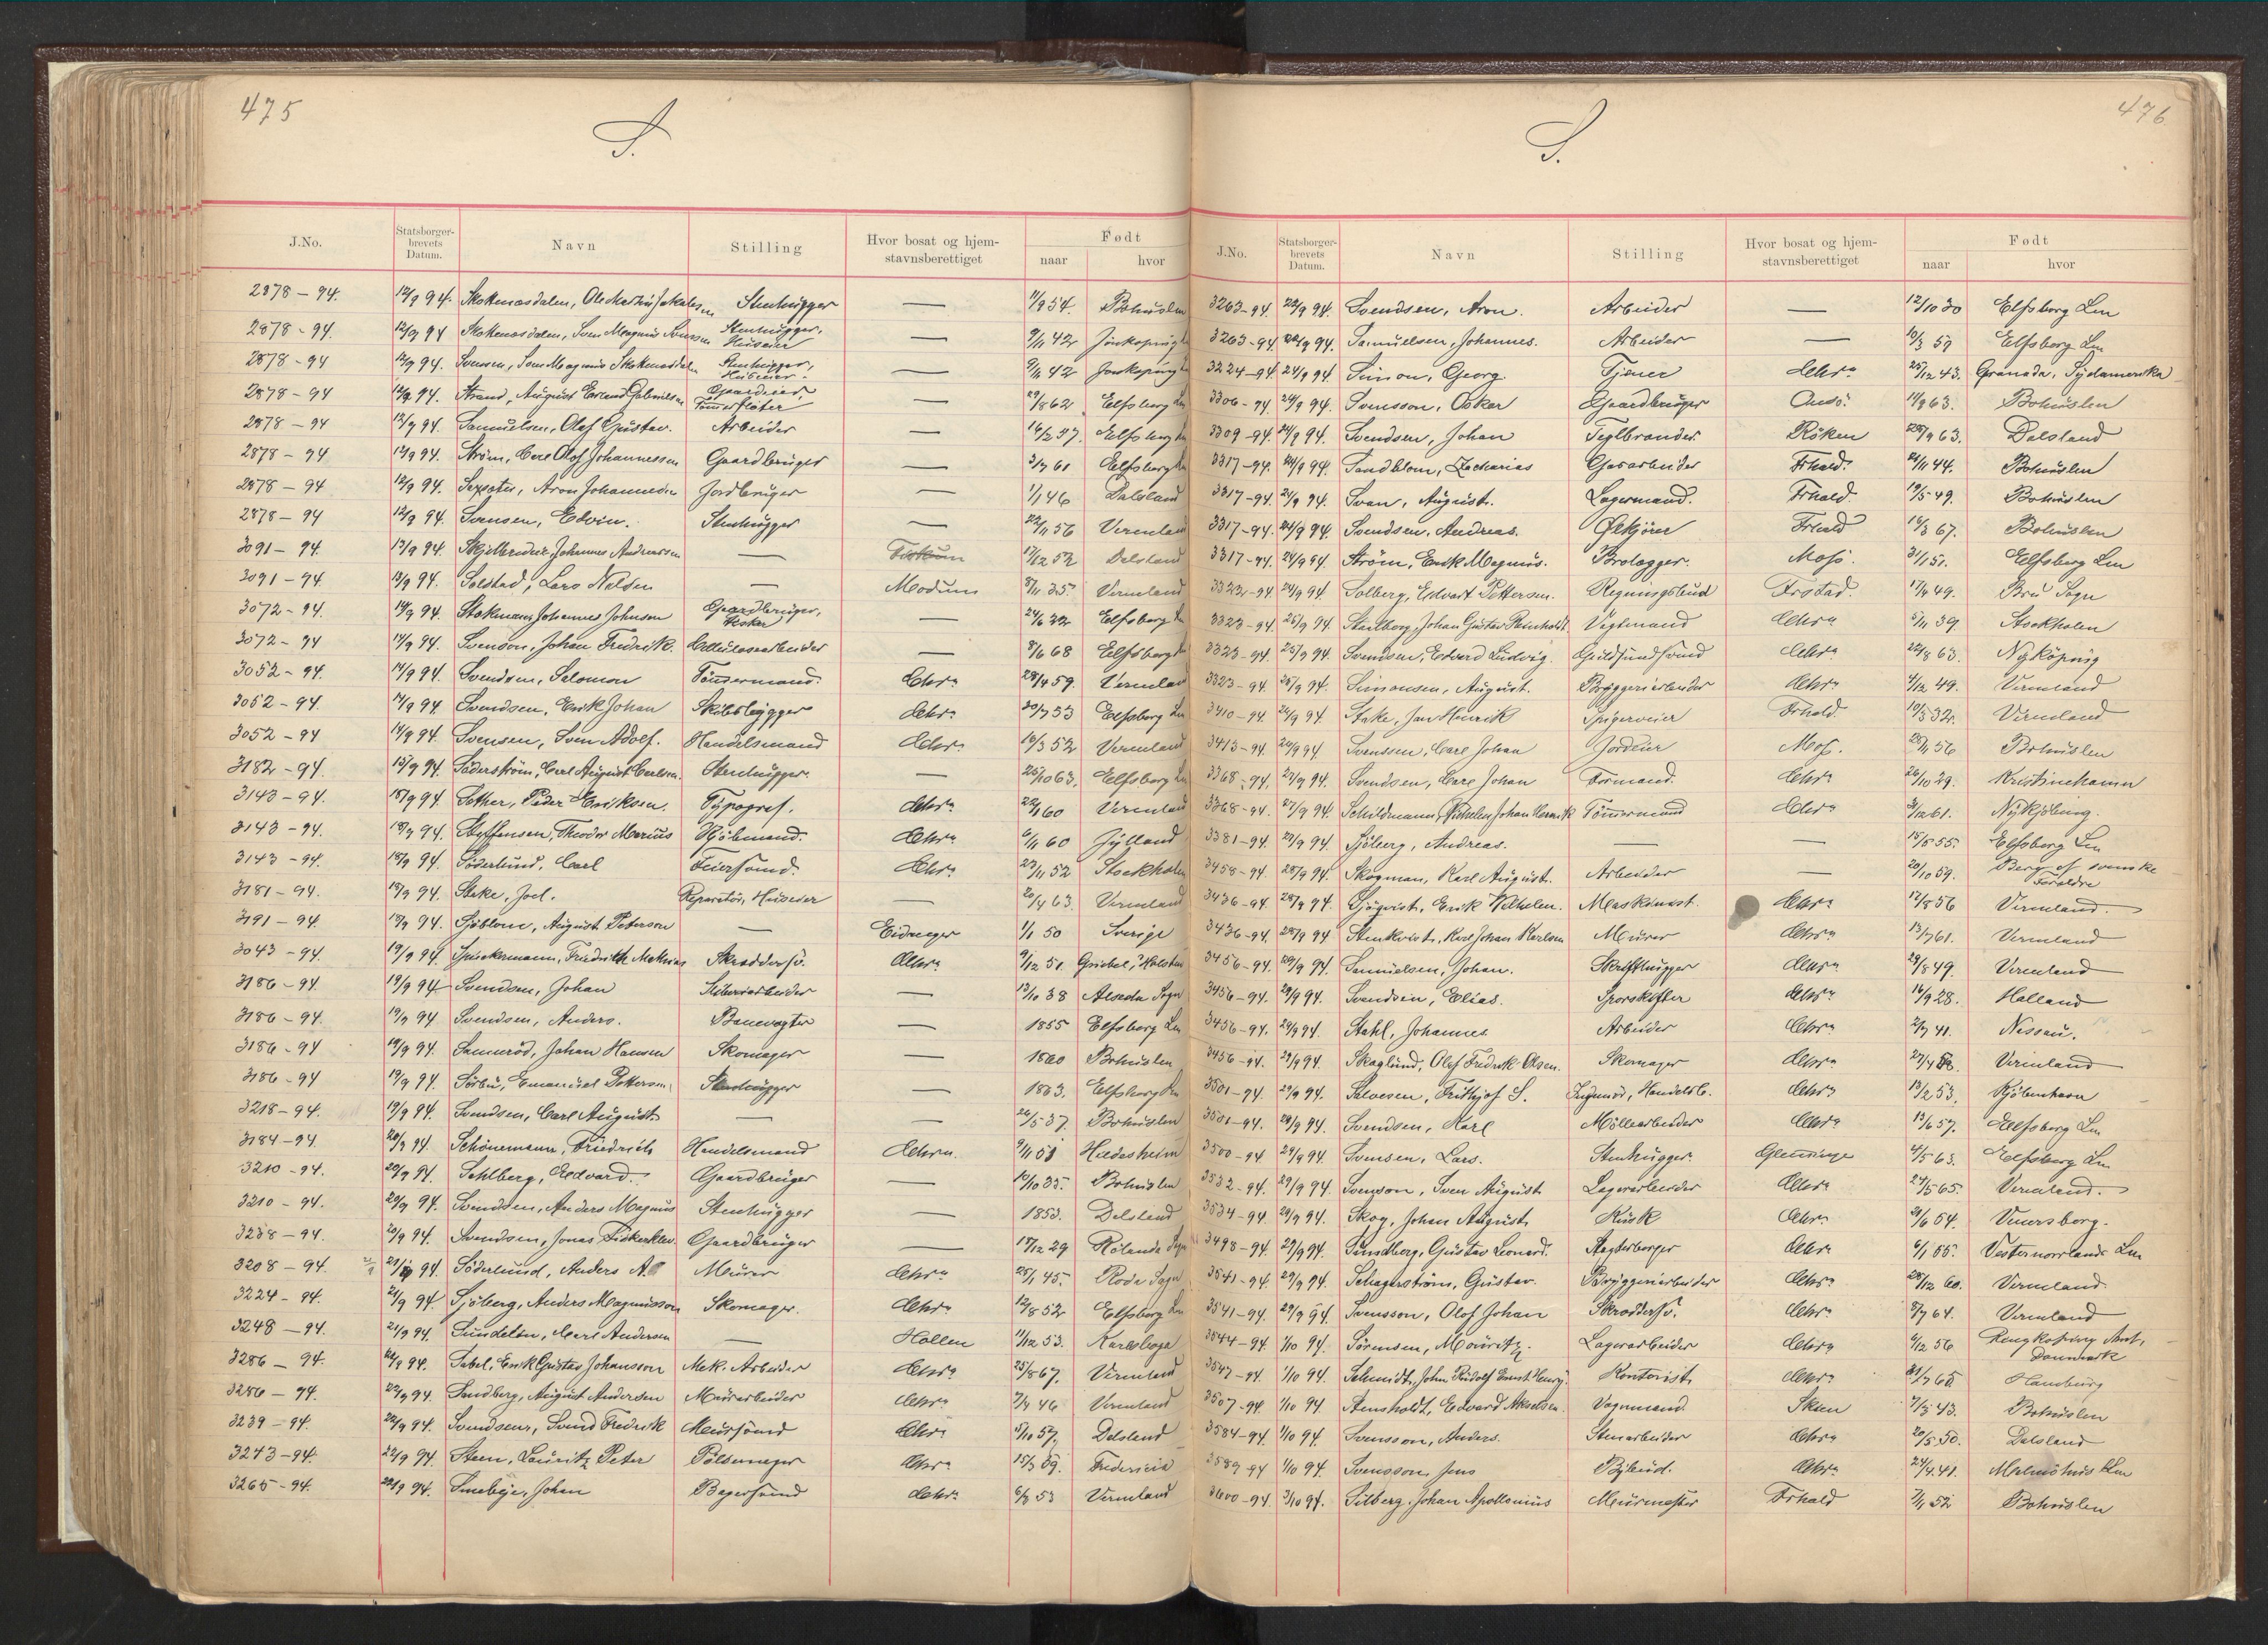 475
S.
J.No. Statsborger-brevets Datum. Navn Stilling Hvor bosat og hjem-stavnsberettiget Født naar hvor
2878 – 94. 12/9 94. Skottenæsdalen, Ole Stenhugger — 11/9 54. Bohuslen
2878 – 94. 12/9 94 Skottenæsdalen, Sven Magnus Svensen Stenhugger, Huseier — 9/11 42 Jönköping
2878 – 94 12/9 94. Svensen, Sven Magnus Skottenæsdalen Stenhugger, Huseier — 9/11 42 Jönköping
2878 – 94 12/9 94. Strand, August Erlend Gabrielsen Gaardbruger, Tømmerfløter — 29/8 62 Elfsborg Len
2878 – 94 12/9 94. Samuelsen, Olof Gustav. Arbeider — 16/2 57. Elfsborg Len
2878 – 94 12/9 94. Strøm, Carl Olof Johannessen Gaardbruger — 3/7 61 Elfsborg Len
2878 – 94 12/9 94. Aron Johannessen Jordbruger — 1/1 46 Dalsland
2878 – 94 12/9 94. Svensen, Edvin. Stenhugger — 22/11 56 Vermland
3091 – 94. 13/9 94. Johannes Andreassen — Fiskum 17/12 52 Dalsland
3091 – 94 13/9 94. Solstad, Lars Nilsen — Modum 8/11 35. Vermland
3072 – 94. 14/9 94. Stokmann, Johannes Johnsen Gaardbruger, Fisker — 24/6 32 Elfsborg
3072 – 94 14/9 94. Svenson, Johan Fredrik. Cellulosearbeider — 8/6 68 Elfsborg
3052 – 94. 14/9 94. Svendsen, Salomon Tømmermand. Chra 28/4 59. Vermland
3052 – 94. 14/9 94. Svendsen, Erik Johan Skibsbygger Chra 20/7 53 Elfsborg Len
3052 – 94 14/9 94. Svensen, Sven Adolf. Handelsmand Chra 16/3 52 Vermland
3182 – 94. 15/9 94. Söderström, Carl August Carlsen. Stenhugger. — 25/10 63. Elfsborg Len
3143 – 94. 18/9 94. Sæther, Peder Eriksen. Typograf. Chra 22/1 60 Vermland
3143 – 94. 18/9 94. Steffensen, Theodor Marius Kjøbmand. Chra 6/11 60 Jylland
3143 – 94. 18/9 94. Söderlund, Carl Feiersvend. Chra 23/11 52 Stockholm
3181 – 94. 18/9 94. Stake, Joel. Reparatør, Huseier — 20/4 63. Vermland
3191 – 94. 18/9 94. Sjöblom, August Peterson — Eidanger 1/1 50 Sverige
3043 – 94. 19/9 94. Spieckermann, Friedrich Mathias Skræddersv. Chra 9/12 51. Holsten
3186 – 94. 19/9 94 Svendsen, Johan — 13/10 38 Alseda Sogn
3186 – 94. 19/9 94 Svendsen, Anders. Banevogter — 1855 Elfsborg Len
3186 – 94 19/9 94. Sannerød, Johan Hansen Skomager — 1860 Bohuslen
3186 – 94 19/9 94. Sørbu, Emanuel Pettersen, Stenhugger — 1863. Elfsborg Len
3218 – 94. 19/9 94. Svendsen, Carl August — — 26/5 37. Bohuslen
3184 – 94. 20/9 94. Schönemann, Friedrich Handelsmand Chra. 9/11 51 Hildesheim
3210 – 94. 20/9 94. Sahlberg, Edvard. Gaardbruger — 10/10 35. Bohuslen
3210 – 94. 20/9 94. Svendsen, Anders Magnus Stenhugger — 1853. Dalsland
3238 – 94. 20/9 94. Svendsen, Jonas Gaardbruger — 17/12 29 Rölanda Sogn
3208 – 94. 21/9 94. Söderlund, Anders A. Murer Chra 25/1 45. Sogn
3224 – 94. 21/9 94. Sjöberg, Anders Magnusson Skomager. Chra 12/8 52 Elfsborg Len
3248 – 94. 21/9 94. Sundelin, Karl Andersen — Hollen 11/12 53. Karlskoga
3286 – 94. 22/9 94. Sabel, Erik Gustav Johansson Mek. Arbeider Chra 25/8 67. Vermland
3286 – 94. 22/9 94. Sandberg, August Andersen Murarbeider Chra 7/4 46 Vermland
3239 – 94. 22/9 94. Svendsen, Svend Frederik Mursvend Chra 5/10 57. Dalsland
3243 – 94. 22/9 94. Steen, Lauritz Peter Pølsemager Chra 15/3 69. Fredericia
3265 – 94. 22/9 94. Smebye, Johan Bagersvend Chra 6/8 53 Vermland
476
S.
J.No. Statsborger-brevets Datum. Navn Stilling Hvor bosat og hjem-stavnsberettiget Født naar hvor
3263 – 94. 22/9 94. Svendsen, Aron. Arbeider — 12/10 30 Elfsborg Len
3263 – 94. 22/9 94. Samuelsen, Johannes. Arbeider — 10/3 59 Elfsborg Len
3224 – 94 24/9 94. Simon, Georg. Tjener Chra 25/12 43. Granada, Sydamerika
3306 – 94 24/9 94. Svensson, Oskar Gaardbruger 11/9 63. Bohuslen
3309 – 94. 24/9 94. Svendsen, Johan Teglbrænder Röken 28/9 63. Dalsland
3317 – 94. 24/9 94. Sandblom, Zacharias Gasarbeider Frhald. 24/11 44. Bohuslen
3317 – 94. 24/9 94. Svan, August. Lagermand. Frhald. 19/5 49. Bohuslen
3317 – 94. 24/9 94. Svendsen, Andreas. Ølkjører Frhald 16/3 67. Bohuslen
3317 – 94. 24/9 94. Strøm, Erik Magnus. Brolægger. Moss. 31/1 51. Elfsborg Len
3322 – 94 24/9 94. Solberg, Edvart Pettersen. Regningsbud Frstad. 17/4 49. Bru Sogn
3323 – 94. 25/9 94. Stahlberg, Johan Gustav Reinholdt Vægtmand Chra 5/11 39. Stockholm
3323 – 94. 25/9 94. Svendsen, Edvard Ludvig. Guldsmedsvend Chra 22/8 63. Nyköping
3323 – 94. 25/9 94. Simonsen, August. Bryggeriarbeider Chra 4/12 49. Vermland
3410 – 94. 26/9 94. Stake, Jan Henrik Frhald. 10/3 32. Vermland
3413 – 94. 26/9 94 Svenssen, Carl Johan Jordeier Moss. 28/1 56 Bohuslen
3368 – 94. 27/9 94. Svendsen, Carl Johan Formand. Chra 26/10 29. Kristinehamn
3368 – 94. 27/9 94. Schildmann, Vilhelm Johan Henrik Tømmermand Chra 3/12 61. Nykjøbing.
3381 – 94. 27/9 94. Sjöberg, Andreas. — — 15/5 55. Elfsborg Len
3458 – 94. 28/9 94. Skogman, Karl August. Arbeider — 20/10 59. Berg af svenske Forældre
3436 – 94. 28/9 94. Sjöqvist, Erik Vilhelm. Maskinist. Chra 12/8 56 Vermland.
3436 – 94. 28/9 94 Stenkvist, Karl Johan Karlsen Murer Chra 13/7 61. Vermland
3456 – 94. 29/9 94. Samuelsen, Johan. Skrifthugger Chra 23/8 49. Vermland
3456 – 94. 29/9 94. Svendsen, Elias. Sporskifter Chra 16/9 28. Halland
3456 – 94. 29/9 94. Stahl, Johannes Arbeider Chra 2/7 41. Nassau.
3456 – 94. 29/9 94. Skoglund, Olof Fredrik Olsen. Skomager Chra Vermland
3501 – 94. 29/9 94. Salvesen, Frithjof S. Ingeniør, Handelsb. Chra 13/2 53. Kjöbenhavn
3501 – 94. 29/9 94. Svendsen, Karl Møllearbeider Chra 13/6 57. Elfsborg Len
3500 – 94 29/9 94. Svensen, Lars. Stenhugger. Glemminge 4/5 63. Elfsborg Len
3532 – 94. 29/9 94. Svenson, Sven August Lagerarbeider Chra 27/5 65. Vermland.
3534 – 94. 29/9 94. Skog, Johan August. Kusk Chra 21/6 54. Venersborg.
3498 – 94. 29/9 94. Sundberg, Gustav Leonard. Slagterborger Chra 6/1 55. Vesternorrlands Len
3541 – 94. 29/9 94. Schagerström, Gustav. Bryggeriarbeider Chra 28/12 60. Vermland.
3541 – 94. 29/9 94. Svensson, Olof Johan Skræddersv. Chra 8/7 64. Vermland
3544 – 94. 1/10 94. Sørensen, Mouritz. Lagerarbeider Chra 6/12 56 Ringkøbing Amt, Danmark
3547 – 94. 1/10 94. Schmidt, John Rudolf Ernst Henry. Kontorist Chra 21/7 65 Hamburg
3507 – 94. 1/10 94 Stensholdt, Edvard Akselsen. Vognmand. Skien 7/3 43. Bohuslen
3584 – 94. 1/10 94. Svensson, Anders. Stenarbeider Chra 20/5 50. Dalsland
3589 – 94 1/10 94. Svensson, Jens Bybud. Chra 24/4 41. Malmöhus Len
3600 – 94. 3/10 94. Silberg, Johan Apollonius Murmester Frhald 7/1 52 Bohuslen